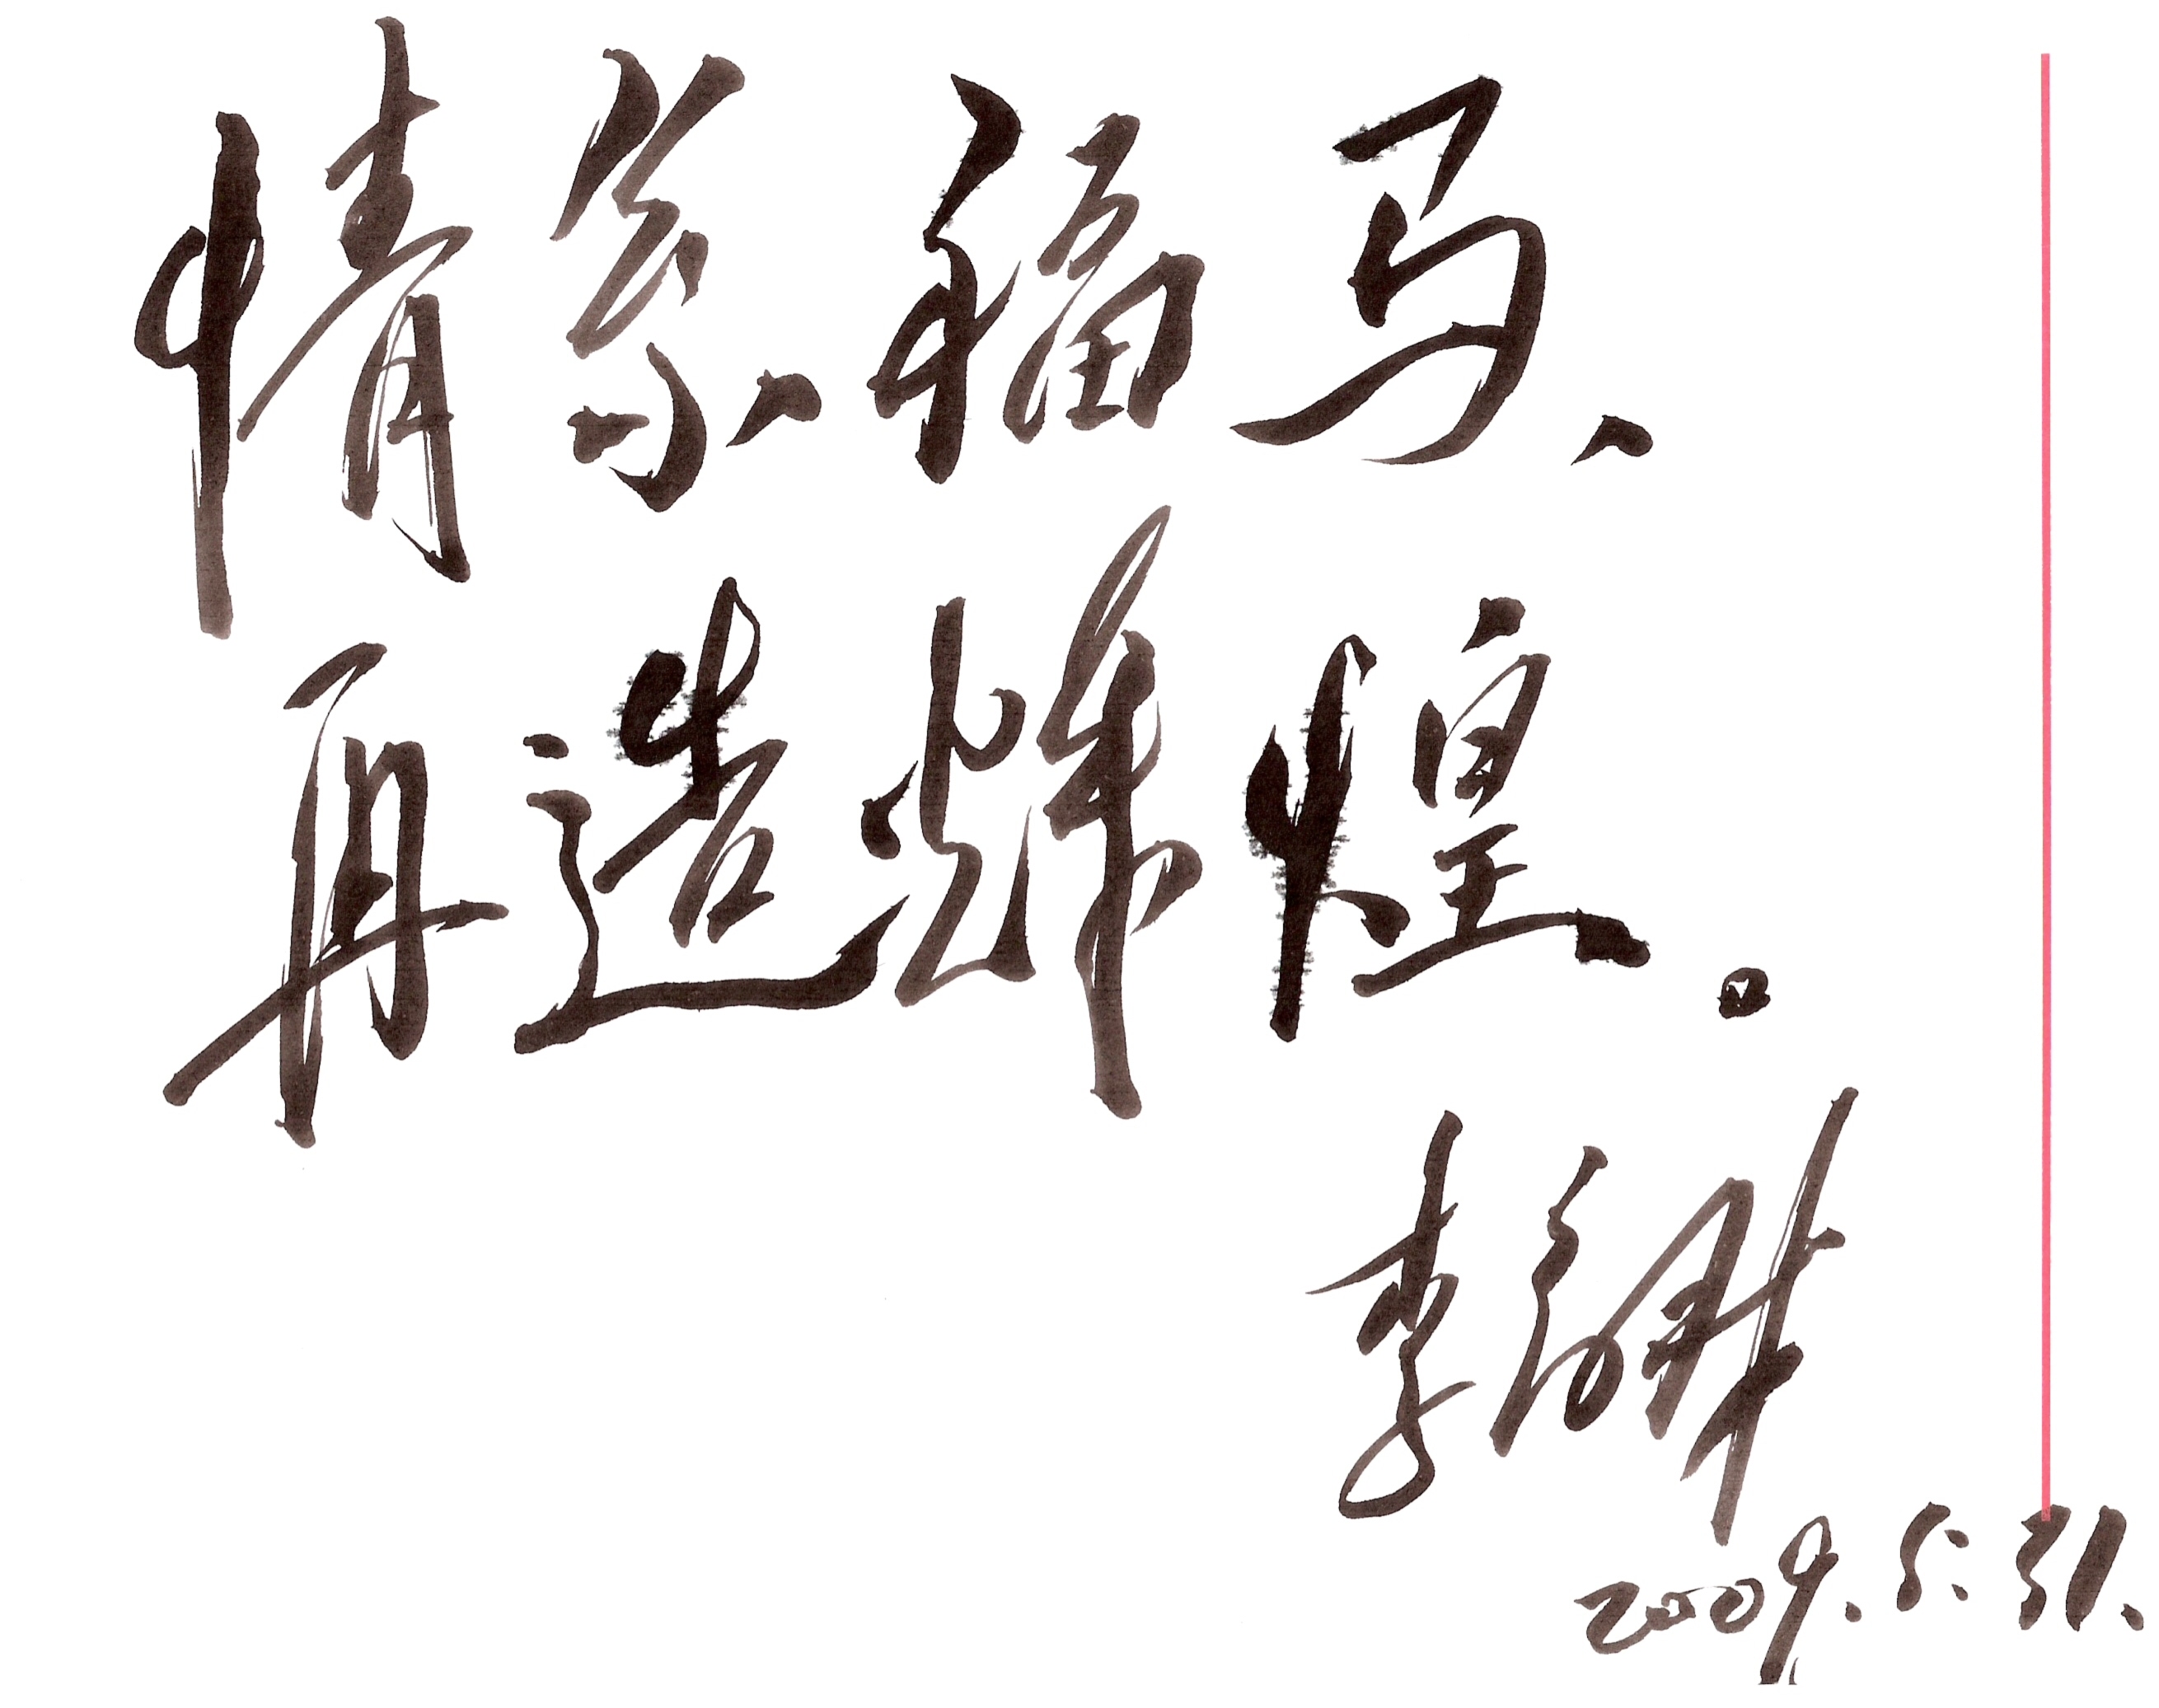 情萦福马、
再造辉煌。
李
2009.5.31.